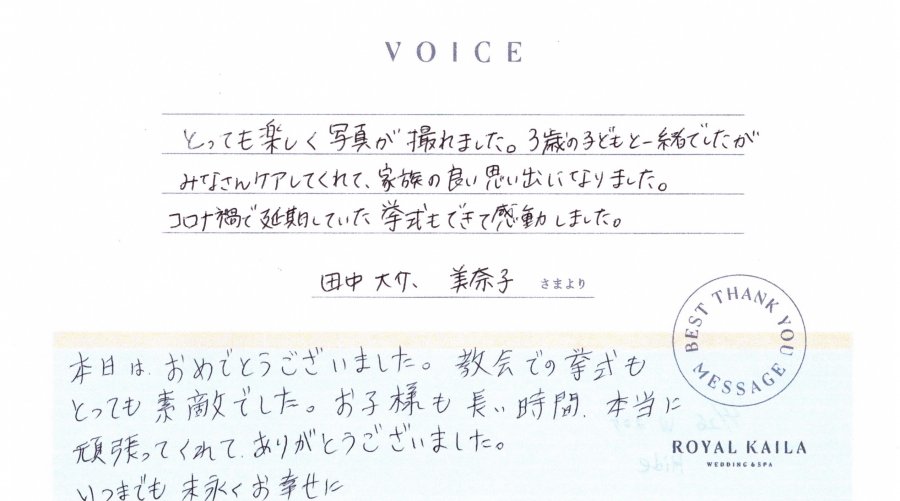 VOICE
とっても楽しく写真が撮れました。3歳の子どもと一緒でしたが
みなさんケアしてくれて、家族の良い思い出になりました。
コロナ禍で延期していた挙式もできて感動しました。
田中 大介、美奈子 さまより
BEST THANK YOU MESSAGE
本日は、おめでとうございました。教会での挙式も
とっても素敵でした。お子様も長い時間、本当に
頑張ってくれて、ありがとうございました。
いつまでも末永くお幸せに
ROYAL KAILA
WEDDING & SPA